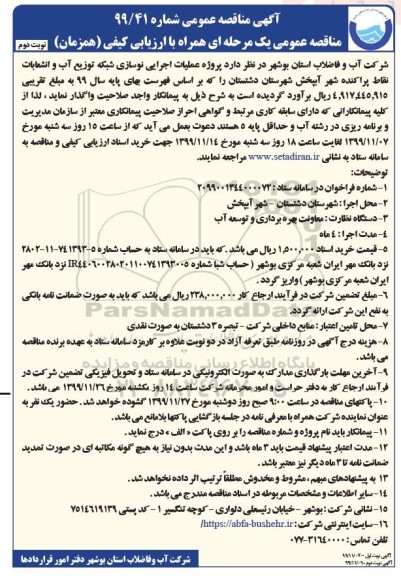 آگهی مناقصه عمومی شماره ۹۹/۴۱
مناقصه عمومی یک مرحله ای همراه با ارزیابی کیفی (همزمان)
نوبت دوم
شرکت آب و فاضلاب استان بوشهر در نظر دارد پروژه عملیات اجرایی نوسازی شبکه توزیع آب و انشعابات
نقاط پراکنده شهر آبپخش شهرستان دشتستان را که بر اساس فهرست بهای پایه سال ۹۹ به مبلغ تقریبی
۴,۹۱۷,۴۴۵,۹۱۵ ریال برآورد گردیده است به شرح ذیل به پیمانکار واجد صلاحیت واگذار نماید ، لذا از
کلیه پیمانکارانی که دارای سابقه کاری مرتبط و گواهی احراز صلاحیت پیمانکاری معتبر از سازمان مدیریت
و برنامه ریزی در رشته آب و حداقل پایه ۵ هستند دعوت بعمل می آید که از ساعت ۱۵ روز سه شنبه مورخ
۱۳۹۹/۱۱/۰۷ لغایت ساعت ۱۸ روز سه شنبه مورخ ۱۳۹۹/۱۱/۱۴ جهت خرید اسناد ارزیابی کیفی و مناقصه به
سامانه ستاد به نشانی www.setadiran.ir مراجعه نمایند.
توضیحات:
۱-شماره فراخوان در سامانه ستاد : ۲۰۹۹۰۰۱۳۴۴۰۰۰۰۷۳
۲- محل اجرا : شهرستان دشتستان - شهر آبپخش
۳-دستگاه نظارت : معاونت بهره برداری و توسعه آب
۴-مدت اجرا : ۴ ماه
۵- قیمت خرید اسناد ۱,۵۰۰,۰۰۰ ریال می باشد . که باید در سامانه ستاد به حساب شماره ۵-۷۴۱۳۹۳-۱۱-۲۸۰۲
نزد بانک مهر ایران شعبه مرکزی بوشهر ( حساب شبا شماره IR۴۴۰۶۰۰۲۸۰۲۰۱۱۰۰۷۴۱۳۹۳۰۰۵ نزد بانک مهر
ایران شعبه مرکزی بوشهر ) واریز گردد .
۶-مبلغ تضمین شرکت در فرآیند ارجاع کار ۲۳۸,۰۰۰,۰۰۰ ریال می باشد که باید به صورت ضمانت نامه بانکی
به نفع این شرکت ارائه گردد.
۷-محل تامین اعتبار : منابع داخلی شرکت - تبصره ۳ دشتستان به صورت نقدی
۸- هزینه درج آگهی در روزنامه طبق تعرفه آزاد در دو نوبت علاوه بر کارمزد سامانه ستاد به عهده برنده مناقصه
می باشد.
۹-آخرین مهلت بارگذاری مدارک به صورت الکترونیکی در سامانه ستاد و تحویل فیزیکی تضمین شرکت در
فرآیند ارجاع کار به دفتر حراست و امور محرمانه شرکت ساعت ۱۴ روز یکشنبه مورخ ۱۳۹۹/۱۱/۲۶ می باشد .
۱۰- پاکتهای مناقصه در ساعت ۹:۰۰ صبح روز دوشنبه مورخ ۱۳۹۹/۱۱/۲۷ گشوده خواهد شد. حضور یک نفر به
عنوان نماینده شرکت همراه با معرفی نامه در جلسه بازگشایی پاکتها بلامانع می باشد.
۱۱-پیمانکار باید نام پروژه و شماره مناقصه را بر روی پاکت « الف » درج نماید .
۱۲-مدت اعتبار پیشنهاد قیمت باید ۳ ماه باشد و این مدت بدون نیاز به هیچ گونه مکاتبه ای در صورت تمدید
ضمانت نامه تا ۳ ماه دیگر نیز معتبر باشد.
۱۳ به پیشنهادهای مبهم ، مشروط و مخدوش مطلقاً ترتیب اثر داده نخواهد شد.
۱۴-سایر اطلاعات و مشخصات مربوطه در اسناد مناقصه مندرج می باشد .
۱۵-نشانی شرکت : بوشهر - خیابان رئیسعلی دلواری - کوچه تنگسیر ۱ - کد پستی ۷۵۱۴۶۱۹۱۳۹
۱۶-سایت اینترنتی شرکت : https://abfa-bushehr.ir/
تلفن تماس : ۳۱۶۴۰۰۰۰-۰۷۷
شرکت آب وفاضلاب استان بوشهر دفتر امور قراردادها